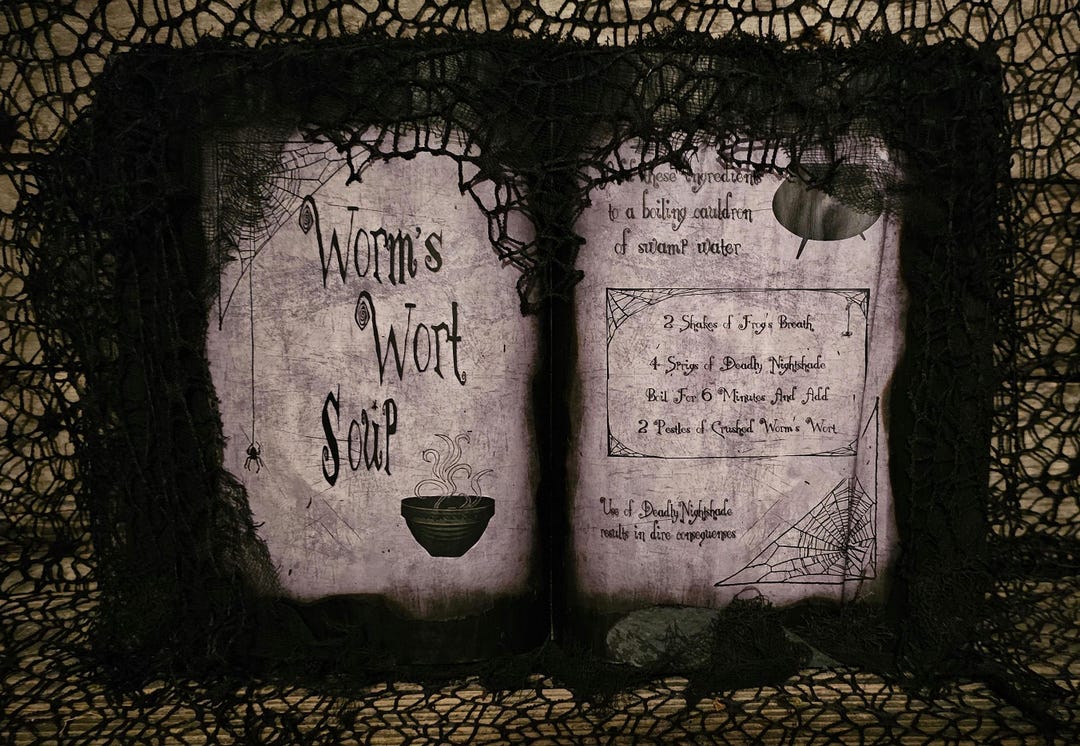 Worm's
Wort
Soup
these ingredients
to a boiling cauldron
of swamp water
2 Shakes of Frog's Breath
4 Sprigs of Deadly Nightshade
Boil For 6 Minutes And Add
2 Pestles of Crushed Worm's Wort
Use of Deadly Nightshade
results in dire consequenses